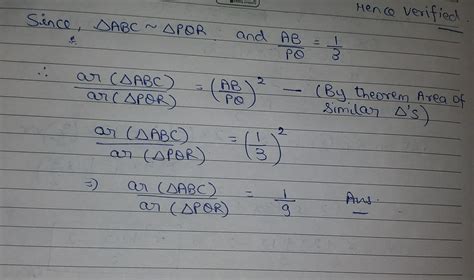 Hence verified.
Since, △ABC ~ △PQR and AB/PQ = 1/3
∴ ar (△ABC)/ar (△PQR) = (AB/PQ)² — (By theorem Area of Similar △'s)
ar (△ABC)/ar (△PQR) = (1/3)²
⇒ ar (△ABC)/ar (△PQR) = 1/9 Ans.